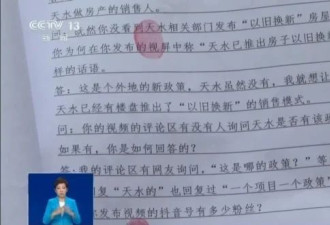 CCTV 13
天水做房产的销售人。
虽然你没看到天水相关部门发布“以旧换新”房屋
你为何在你发布的视屏中称“天水已推出房子以旧换
样的话语。
答：这是个外地的新政策，天水虽然没有，我就想让
天水已经有楼盘推出了“以旧换新”的销售模式。
问：你的视频的评论区有没有人询问天水是否有该政
如果有，你是如何回答的？
答：我的评论区有网友询问，“这是哪的政策？”等
回复“天水的”也回复过“一个项目一个政策”
发布视频的抖音号有多少粉丝？